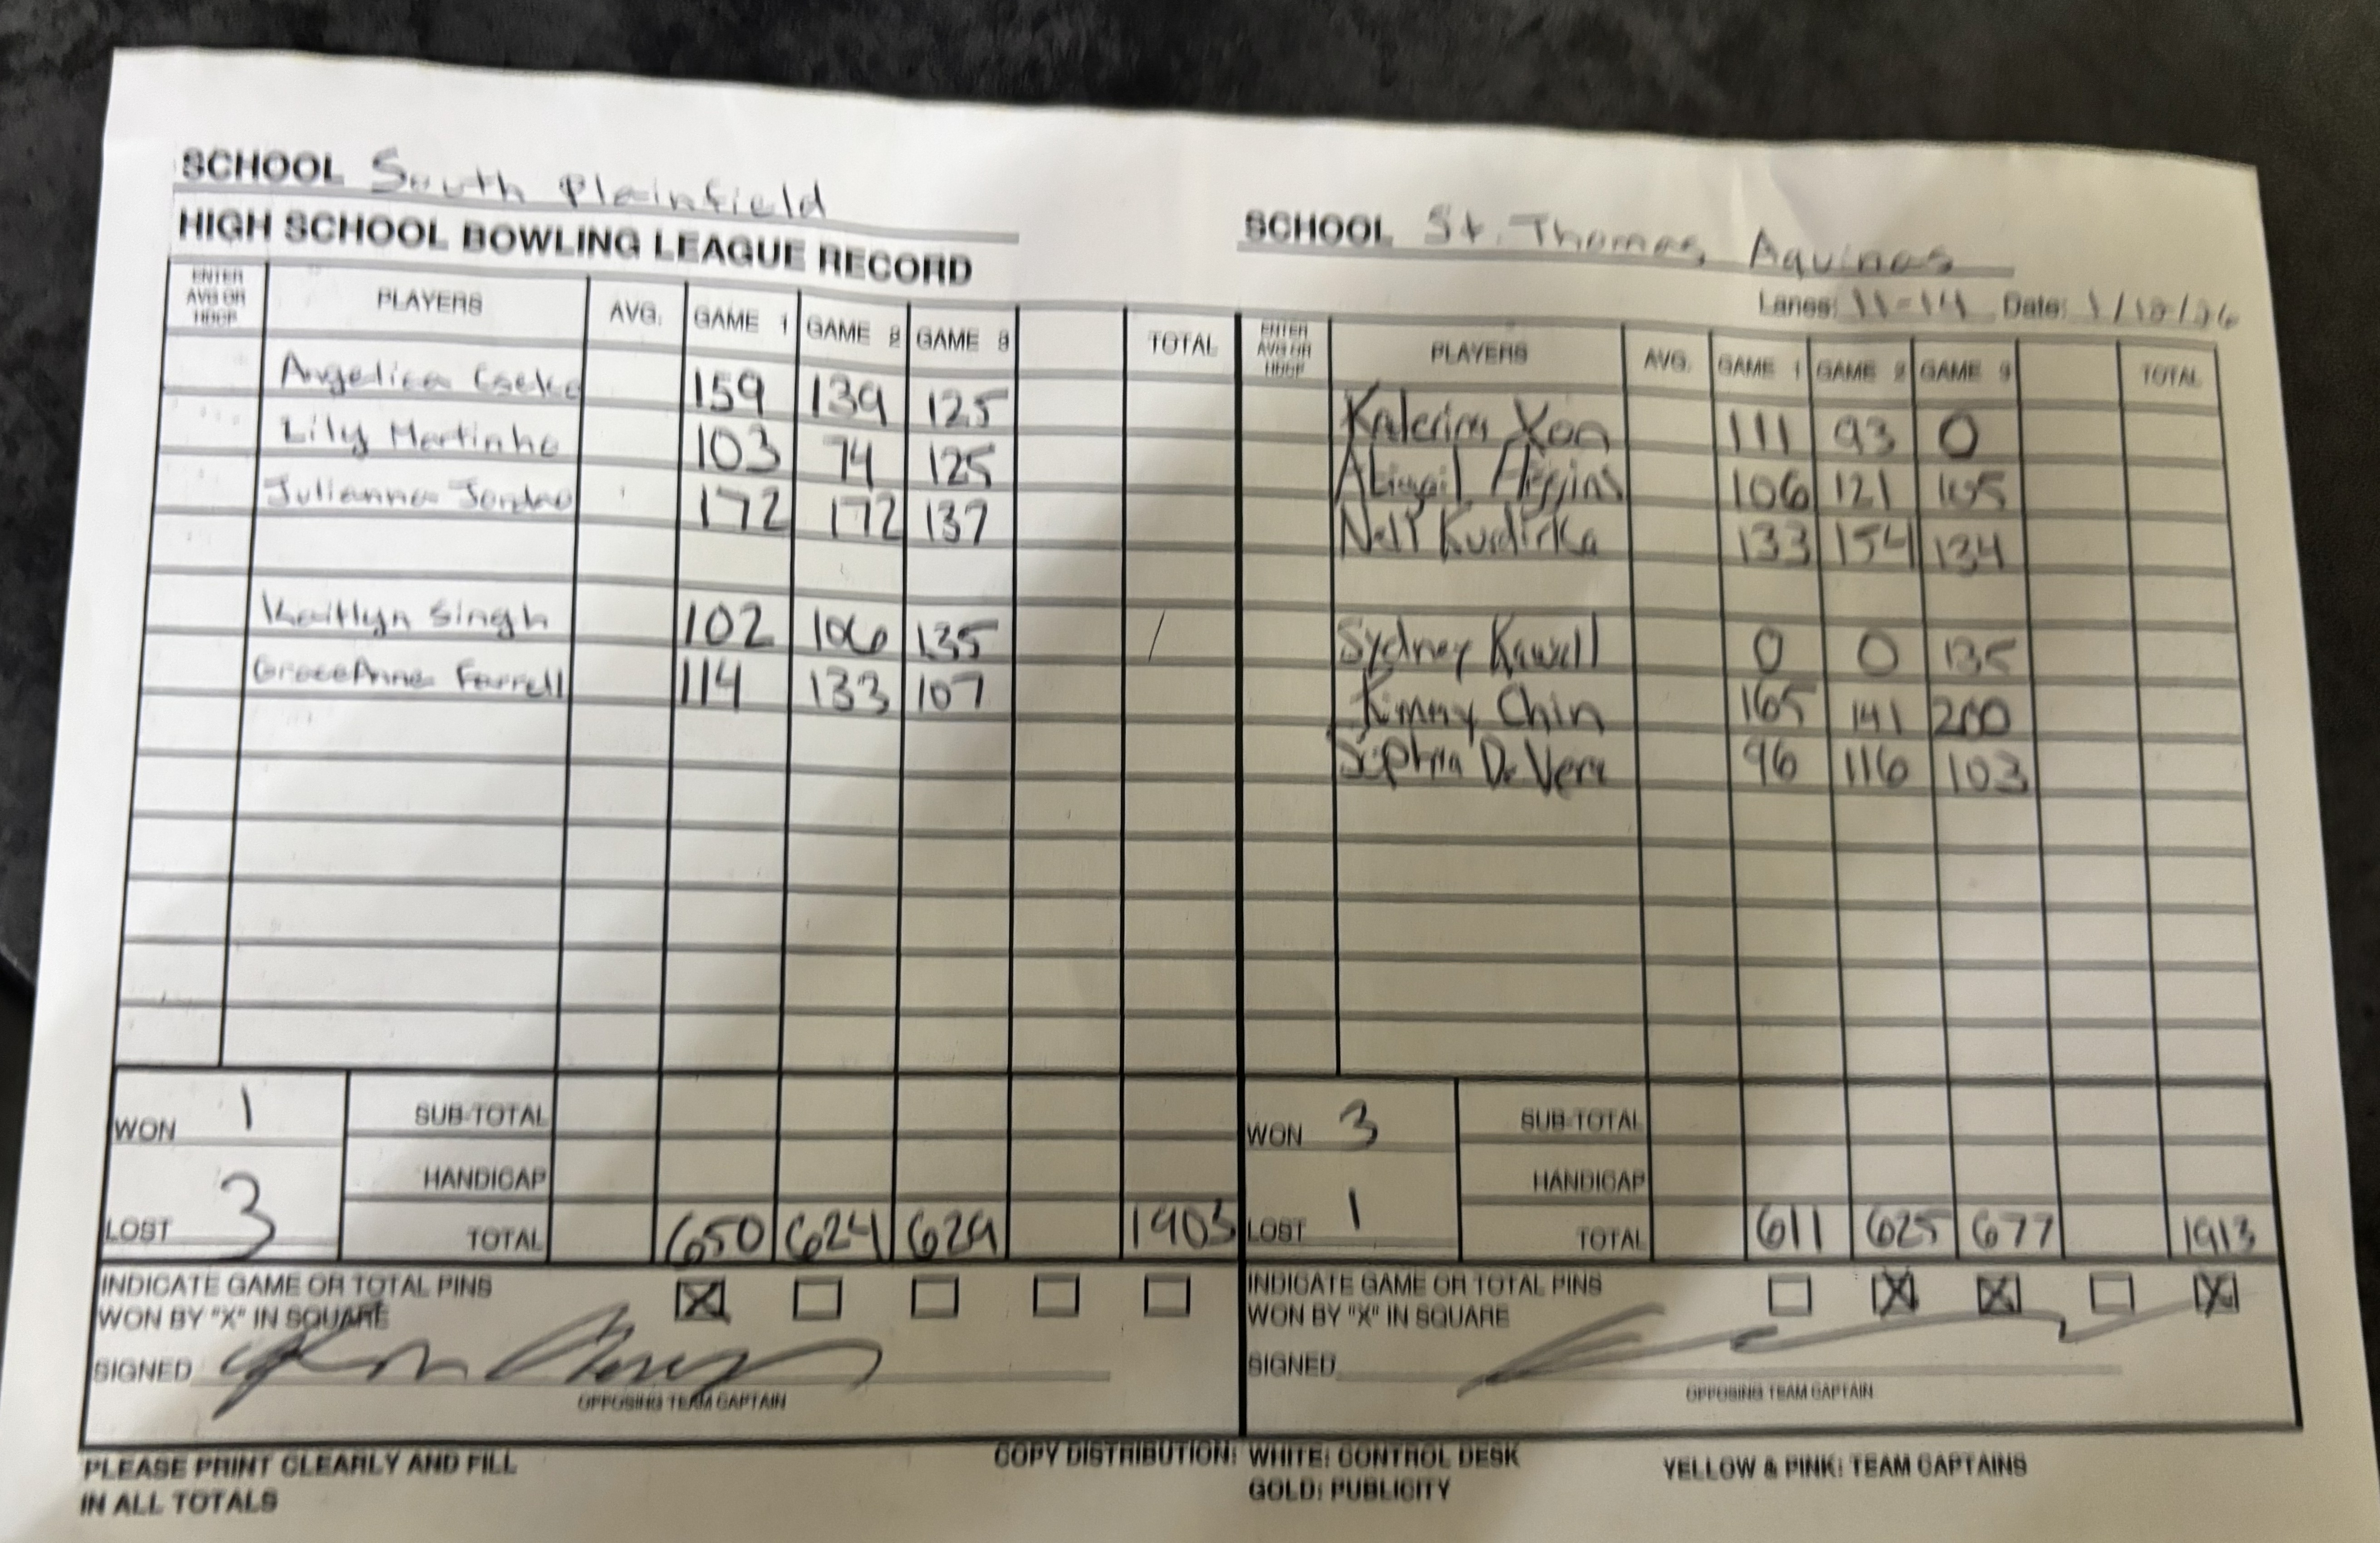 SCHOOL South Plainfield
HIGH SCHOOL BOWLING LEAGUE RECORD
SCHOOL St. Thomas Aquinas
Lanes: 11-14 Date:
ENTER AVG OR HDCP PLAYERS AVG. GAME 1 GAME 2 GAME 3 TOTAL
Angelica 159 139 125
Lily Martinho 103 74 125
Julianna Jordao 172 172 137
Kaitlyn Singh 102 106 135
GraceAnne Farrell 114 133 107
WON 1 SUB-TOTAL
HANDICAP
LOST 3 TOTAL 650 624 629 1903
INDICATE GAME OR TOTAL PINS
WON BY "X" IN SQUARE X
SIGNED
OPPOSING TEAM CAPTAIN
ENTER AVG OR HDCP PLAYERS AVG. GAME 1 GAME 2 GAME 3 TOTAL
Katerina 111 93 0
Abigail Higgins 106 121 105
Nell Kudirka 133 154 134
Sydney 0 0 135
Kimmy Chin 165 141 200
Sophia De Vera 96 116 103
WON 3 SUB-TOTAL
HANDICAP
LOST 1 TOTAL 611 625 677 1913
INDICATE GAME OR TOTAL PINS
WON BY "X" IN SQUARE X X X
SIGNED
OPPOSING TEAM CAPTAIN
PLEASE PRINT CLEARLY AND FILL
IN ALL TOTALS
COPY DISTRIBUTION: WHITE: CONTROL DESK
GOLD: PUBLICITY
YELLOW & PINK: TEAM CAPTAINS